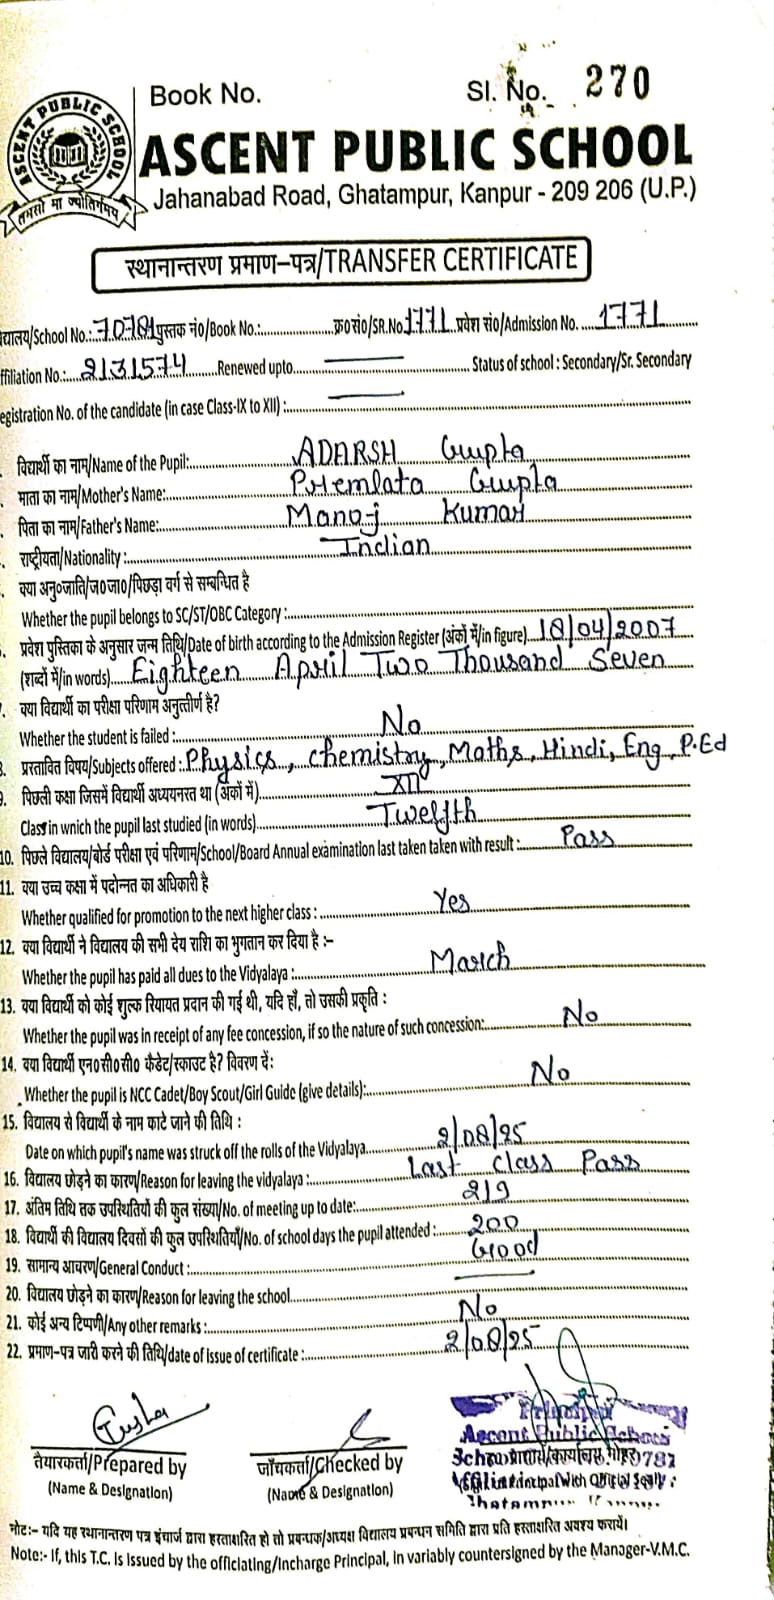 Book No.
Sl. No. 270
ASCENT PUBLIC SCHOOL
तमसो मा ज्योतिर्गमय
ASCENT PUBLIC SCHOOL
Jahanabad Road, Ghatampur, Kanpur - 209 206 (U.P.)
स्थानान्तरण प्रमाण-पत्र/TRANSFER CERTIFICATE
द्यालय/School No.: 70781 पुस्तक नं०/Book No.: क्र०सं०/SR.No. 1771 प्रवेश सं०/Admission No. 1771
ffiliation No.: 2131574 Renewed upto Status of school : Secondary/Sr. Secondary
egistration No. of the candidate (in case Class-IX to XII) :
विद्यार्थी का नाम/Name of the Pupil: ADARSH Gupta
माता का नाम/Mother's Name: Premlata Gupta
पिता का नाम/Father's Name: Manoj Kumar
राष्ट्रीयता/Nationality : Indian
क्या अनु०जाति/ज०जा०/पिछड़ा वर्ग से सम्बन्धित है
Whether the pupil belongs to SC/ST/OBC Category :
प्रवेश पुस्तिका के अनुसार जन्म तिथि/Date of birth according to the Admission Register (अंकों में/in figure) 18/04/2007
(शब्दों में/in words) Eighteen April Two Thousand Seven
क्या विद्यार्थी का परीक्षा परिणाम अनुत्तीर्ण है?
Whether the student is failed : No
प्रस्तावित विषय/Subjects offered : Physics, chemistry, Maths, Hindi, Eng, P.Ed
पिछली कक्षा जिसमें विद्यार्थी अध्ययनरत था (अंकों में) XII
Class in wnich the pupil last studied (in words) Twelfth
10. पिछले विद्यालय/बोर्ड परीक्षा एवं परिणाम/School/Board Annual examination last taken taken with result : Pass
11. क्या उच्च कक्षा में पदोन्नत का अधिकारी है
Whether qualified for promotion to the next higher class : Yes
12. क्या विद्यार्थी ने विद्यालय की सभी देय राशि का भुगतान कर दिया है :-
Whether the pupil has paid all dues to the Vidyalaya : March
13. क्या विद्यार्थी को कोई शुल्क रियायत प्रदान की गई थी, यदि हाँ, तो उसकी प्रकृति :
Whether the pupil was in receipt of any fee concession, if so the nature of such concession: No
14. क्या विद्यार्थी एन०सी०सी० कैडेट/स्काउट है? विवरण दें:
Whether the pupil is NCC Cadet/Boy Scout/Girl Guide (give details): No
15. विद्यालय से विद्यार्थी के नाम काटे जाने की तिथि :
Date on which pupil's name was struck off the rolls of the Vidyalaya 2/08/25
16. विद्यालय छोड़ने का कारण/Reason for leaving the vidyalaya : Last class Pass
17. अंतिम तिथि तक उपस्थितियों की कुल संख्या/No. of meeting up to date: 219
18. विद्यार्थी की विद्यालय दिवसों की कुल उपस्थितियाँ/No. of school days the pupil attended : 200
19. सामान्य आचरण/General Conduct : Good
20. विद्यालय छोड़ने का कारण/Reason for leaving the school
21. कोई अन्य टिप्पणी/Any other remarks : No
22. प्रमाण-पत्र जारी करने की तिथि/date of issue of certificate : 2/08/25
Principal
Ascent Public School
तैयारकर्ता/Prepared by
(Name & Designation)
जाँचकर्ता/Checked by
(Name & Designation)
नोट:- यदि यह स्थानान्तरण पत्र इंचार्ज द्वारा हस्ताक्षरित हो तो प्रबन्धक/अध्यक्ष विद्यालय प्रबन्धन समिति द्वारा प्रति हस्ताक्षरित अवश्य करायें।
Note:- If, this T.C. is issued by the officiating/Incharge Principal, in variably countersigned by the Manager-V.M.C.